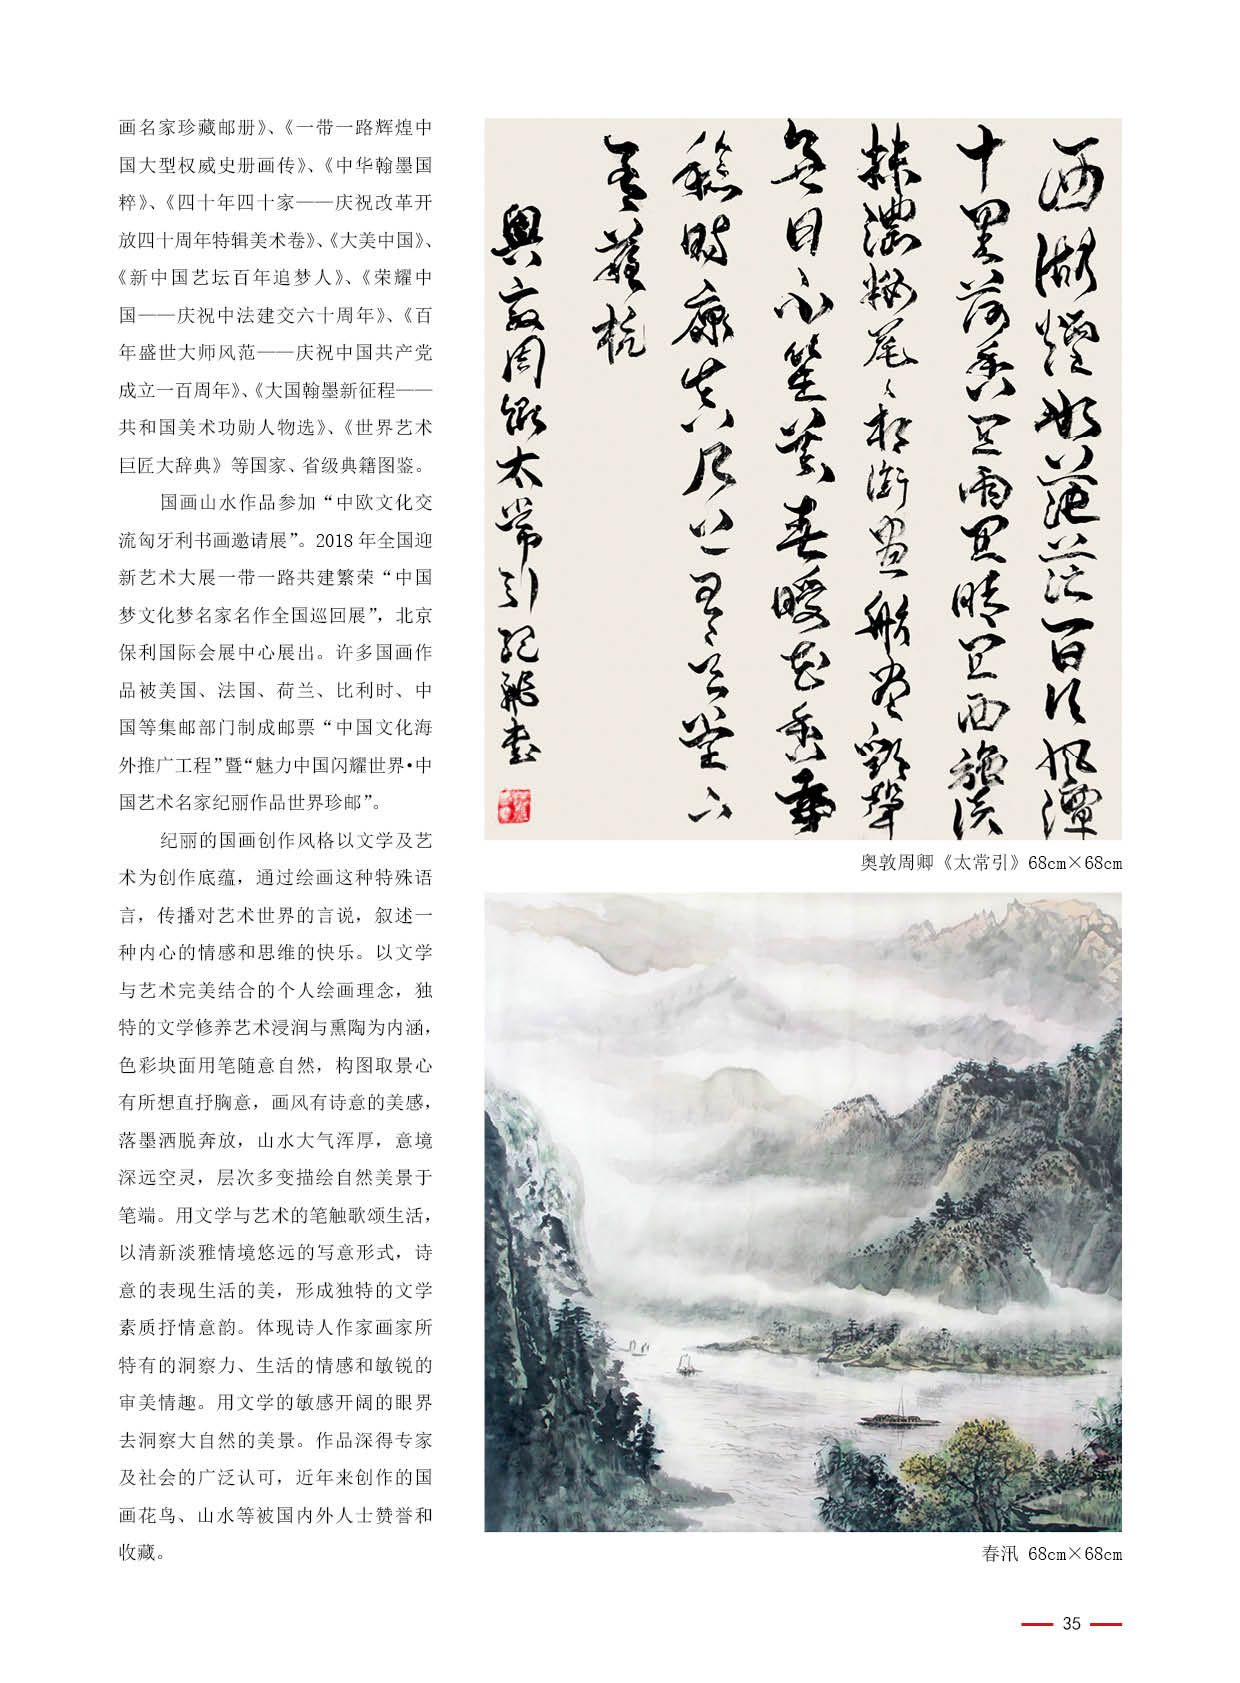 画名家珍藏邮册》、《一带一路辉煌中
国大型权威史册画传》、《中华翰墨国
粹》、《四十年四十家——庆祝改革开
放四十周年特辑美术卷》、《大美中国》、
《新中国艺坛百年追梦人》、《荣耀中
国——庆祝中法建交六十周年》、《百
年盛世大师风范——庆祝中国共产党
成立一百周年》、《大国翰墨新征程——
共和国美术功勋人物选》、《世界艺术
巨匠大辞典》等国家、省级典籍图鉴。
国画山水作品参加“中欧文化交
流匈牙利书画邀请展”。2018 年全国迎
新艺术大展一带一路共建繁荣“中国
梦文化梦名家名作全国巡回展”，北京
保利国际会展中心展出。许多国画作
品被美国、法国、荷兰、比利时、中
国等集邮部门制成邮票“中国文化海
外推广工程”暨“魅力中国闪耀世界•中
国艺术名家纪丽作品世界珍邮”。
纪丽的国画创作风格以文学及艺
术为创作底蕴，通过绘画这种特殊语
言，传播对艺术世界的言说，叙述一
种内心的情感和思维的快乐。以文学
与艺术完美结合的个人绘画理念，独
特的文学修养艺术浸润与熏陶为内涵，
色彩块面用笔随意自然，构图取景心
有所想直抒胸意，画风有诗意的美感，
落墨洒脱奔放，山水大气浑厚，意境
深远空灵，层次多变描绘自然美景于
笔端。用文学与艺术的笔触歌颂生活，
以清新淡雅情境悠远的写意形式，诗
意的表现生活的美，形成独特的文学
素质抒情意韵。体现诗人作家画家所
特有的洞察力、生活的情感和敏锐的
审美情趣。用文学的敏感开阔的眼界
去洞察大自然的美景。作品深得专家
及社会的广泛认可，近年来创作的国
画花鸟、山水等被国内外人士赞誉和
收藏。
西湖煙水茫茫百頃風潭
十里荷香宜雨宜晴宜西施淡
抹濃妝尾尾相銜畫舫盡歡聲
無日不笙簧春暖花香歲
稔時康真乃上有天堂下
有蘇杭
奥敦周卿太常引 紀麗書
奥敦周卿《太常引》68cm×68cm
春汛 68cm×68cm
35